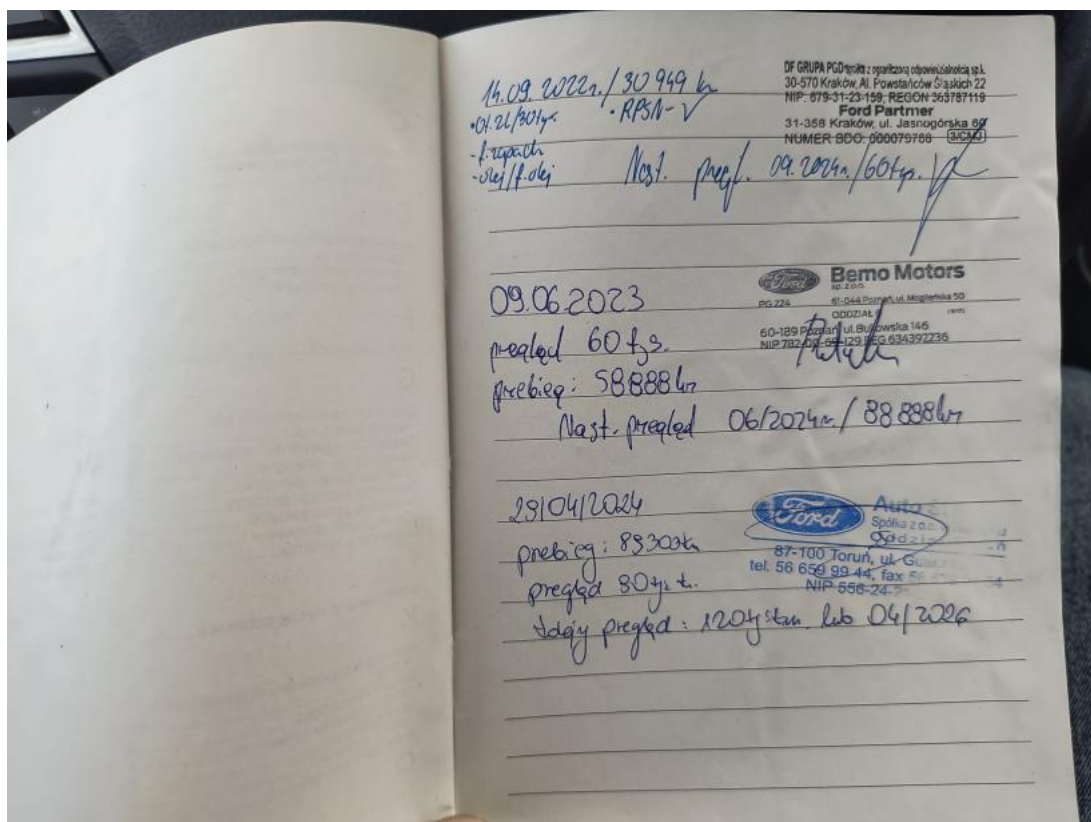 14.09.2022r./30 949 km
• RPSN - V
- olej/f. olej
Nast. przegl. 09.2024r./60tys.
DF GRUPA PGD spółka z ograniczoną odpowiedzialnością sp.k.
30-570 Kraków, Al. Powstańców Śląskich 22
NIP: 679-31-23-159, REGON 363787119
Ford Partner
31-358 Kraków, ul. Jasnogórska 60
NUMER BDO: 000079788 3/CMJ
09.06.2023
przegląd 60 tys.
przebieg: 58888 km
Nast. przegląd 06/2024r./88 888 km
Ford Bemo Motors
sp. z o.o.
PG 224 61-044 Poznań, ul. Mogileńska 50
ODDZIAŁ
60-189 Poznań, ul. Bukowska 146
29/04/2024
przebieg: 89300km
przegląd 90tys.
przegląd: 120tys km lub 04/2026
Ford Auto
Spółka z o.o.
87-100 Toruń, ul.
tel. 56 659 99 44, fax 56
NIP 556-24-